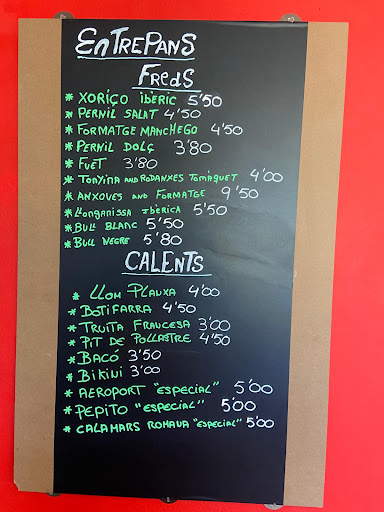 EnTREPANS
FREdS
* XORIÇO IBÈRIC 5'50
* PERNIL SALAT 4'50
* FORMATGE MANCHEGO 4'50
* PERNIL DOLÇ 3'80
* FUET 3'80
* TONYINA AMB RODANXES TOMÀQUET 4'00
* ANXOVES AMB FORMATGE 9'50
* LLONGANISSA IBÈRICA 5'50
* BULL BLANC 5'50
* BULL NEGRE 5'80
CALENTS
* LLOM PLANXA 4'00
* BOTIFARRA 4'50
* TRUITA FRANCESA 3'00
* PIT DE POLLASTRE 4'50
* BACÓ 3'50
* BIKINI 3'00
* AEROPORT "ESPECIAL" 5'00
* PEPITO "ESPECIAL" 5'00
* CALAMARS ROMANA "ESPECIAL" 5'00